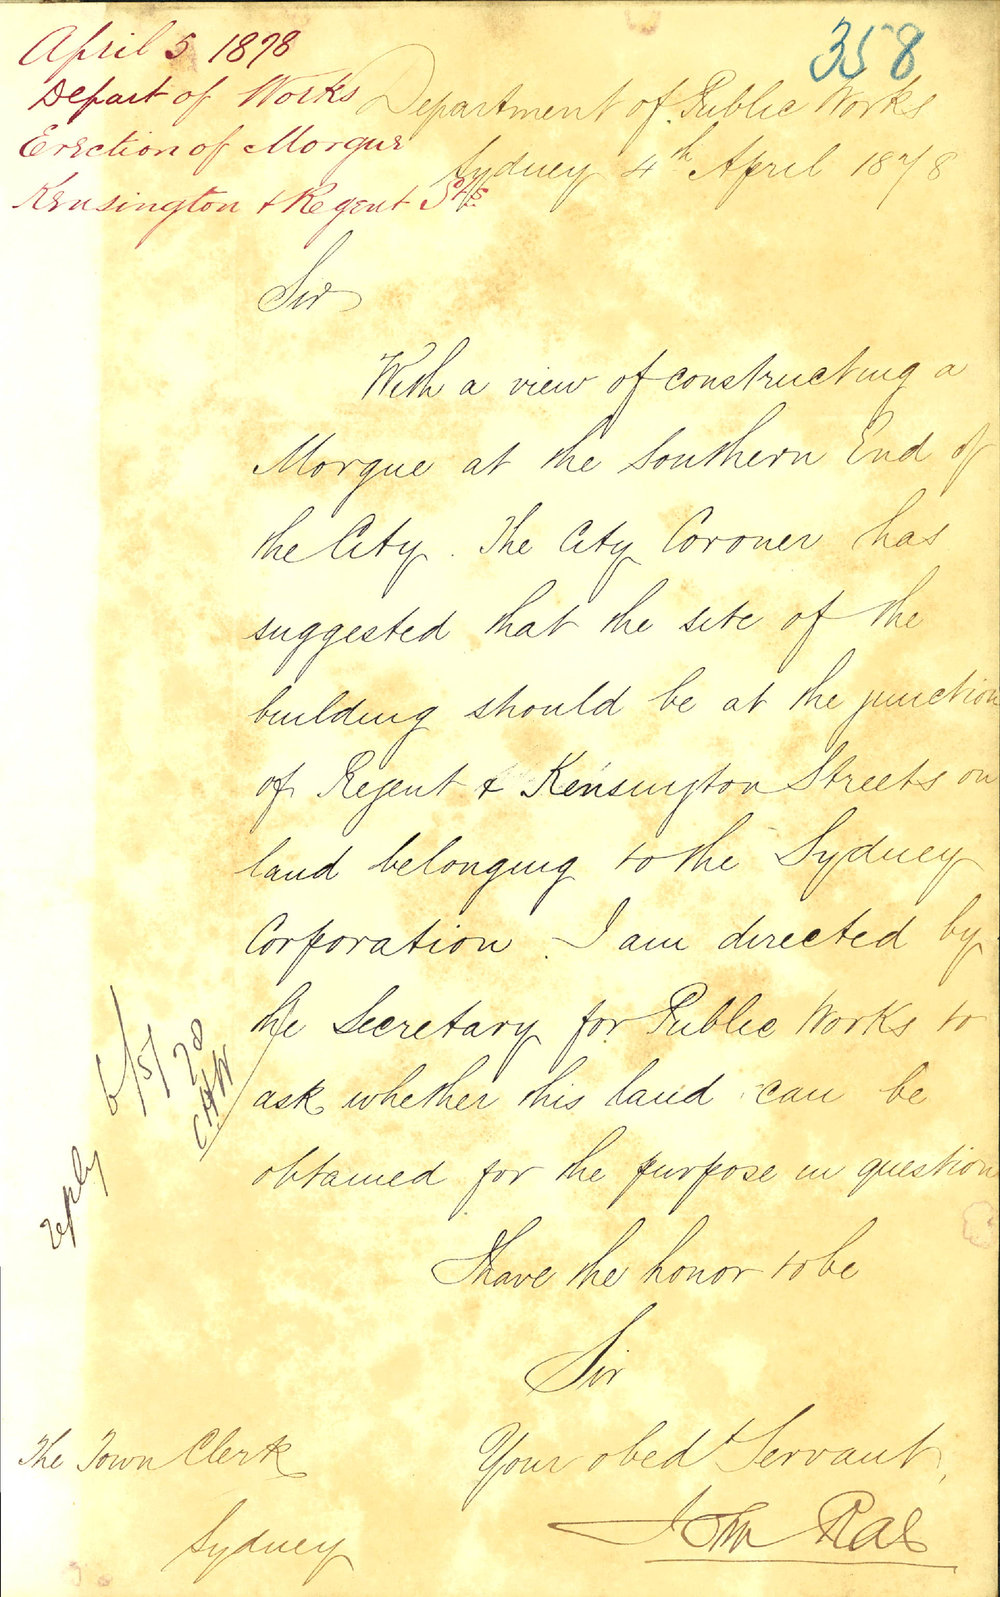 April 5 1878
Depart of Works
Erection of Morgue
Kensington & Regent Sts
358
Department of Public Works
Sydney 4th April 1878
Sir
With a view of constructing a
Morgue at the Southern End of
the City. The City Coroner has
suggested that the site of the
building should be at the junction
of Regent & Kensington Streets on
land belonging to the Sydney
Corporation. I am directed by
the Secretary for Public Works to
ask whether this land can be
obtained for the purpose in question
I have the honor to be
Sir
Your obedt Servant,
John Rae
The Town Clerk
Sydney
reply 6/5/78
CHW